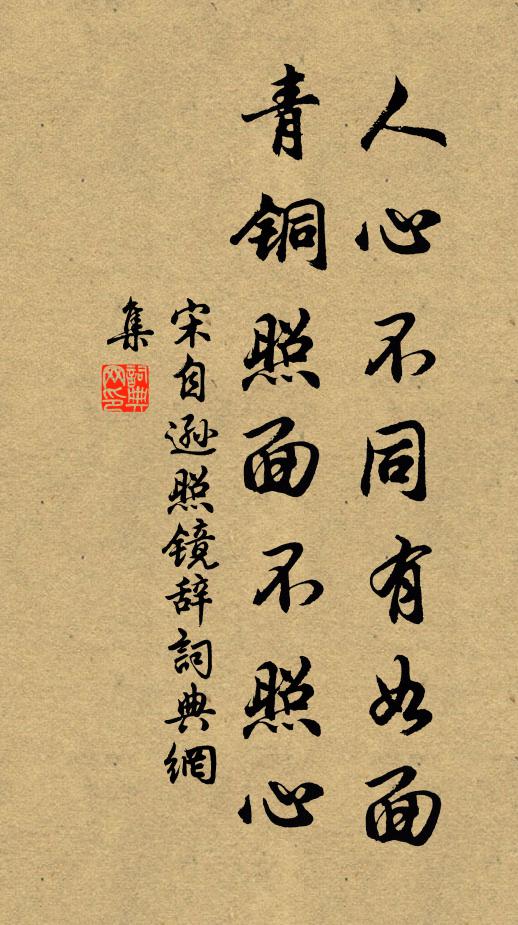 人心不同有如面
青铜照面不照心
宋自逊照镜辞詞典網
集
詞典网印